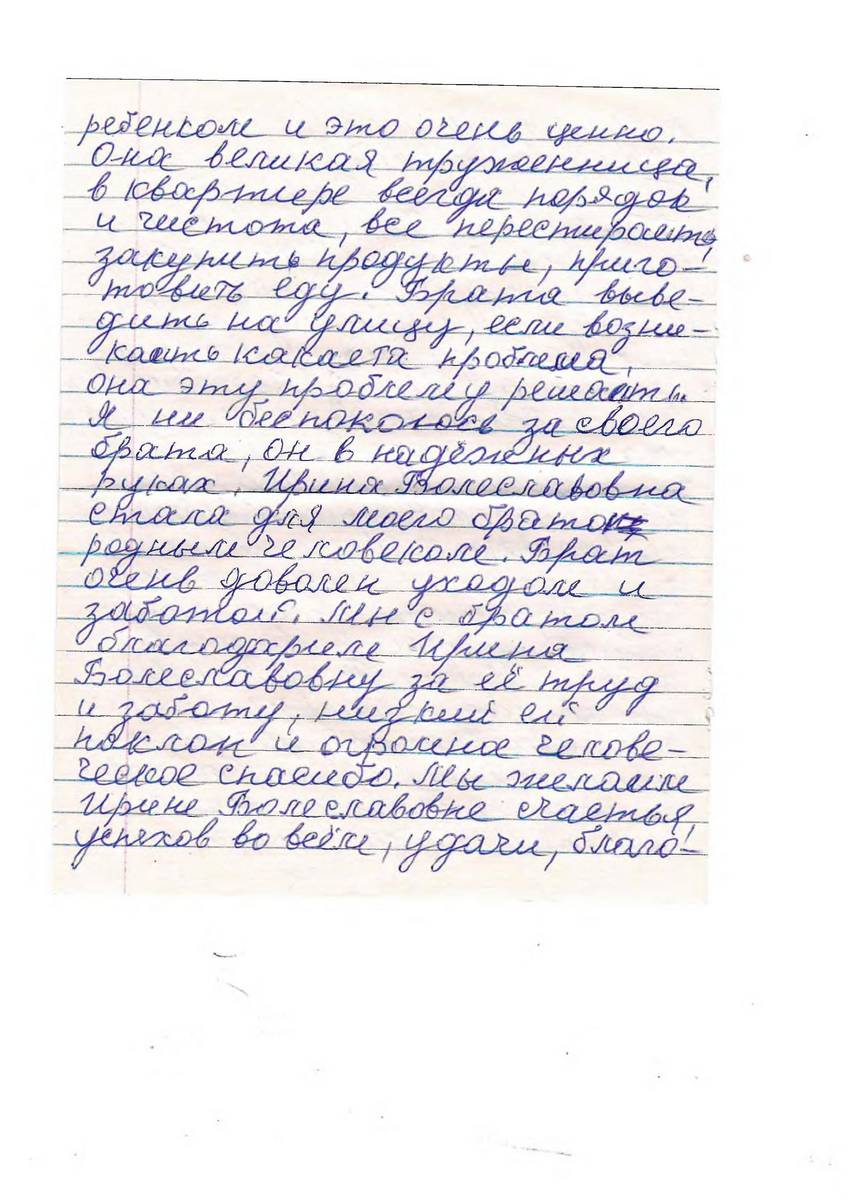 ребенком и это очень ценно.
Она великая труженница,
в квартире всегда порядок
и чистота, все перестираить,
закупить продукты, приго-
товить еду. Брата выве-
дить на улицу, если возни-
каить какаета проблема,
она эту проблему решаить.
Я ни беспокоюсь за своего
брата, он в надёжных
руках. Ирина Болеславовна
стала для моего брата
родным человеком. Брат
очень доволен уходом и
заботой. Мы с братом
благодарим Ирина
Болеславовну за её труд
и заботу, низкий ей
поклон и огромное челове-
ческое спасибо. Мы желаем
Ирине Болеславовне счастья,
успехов во всём, удачи, благо-